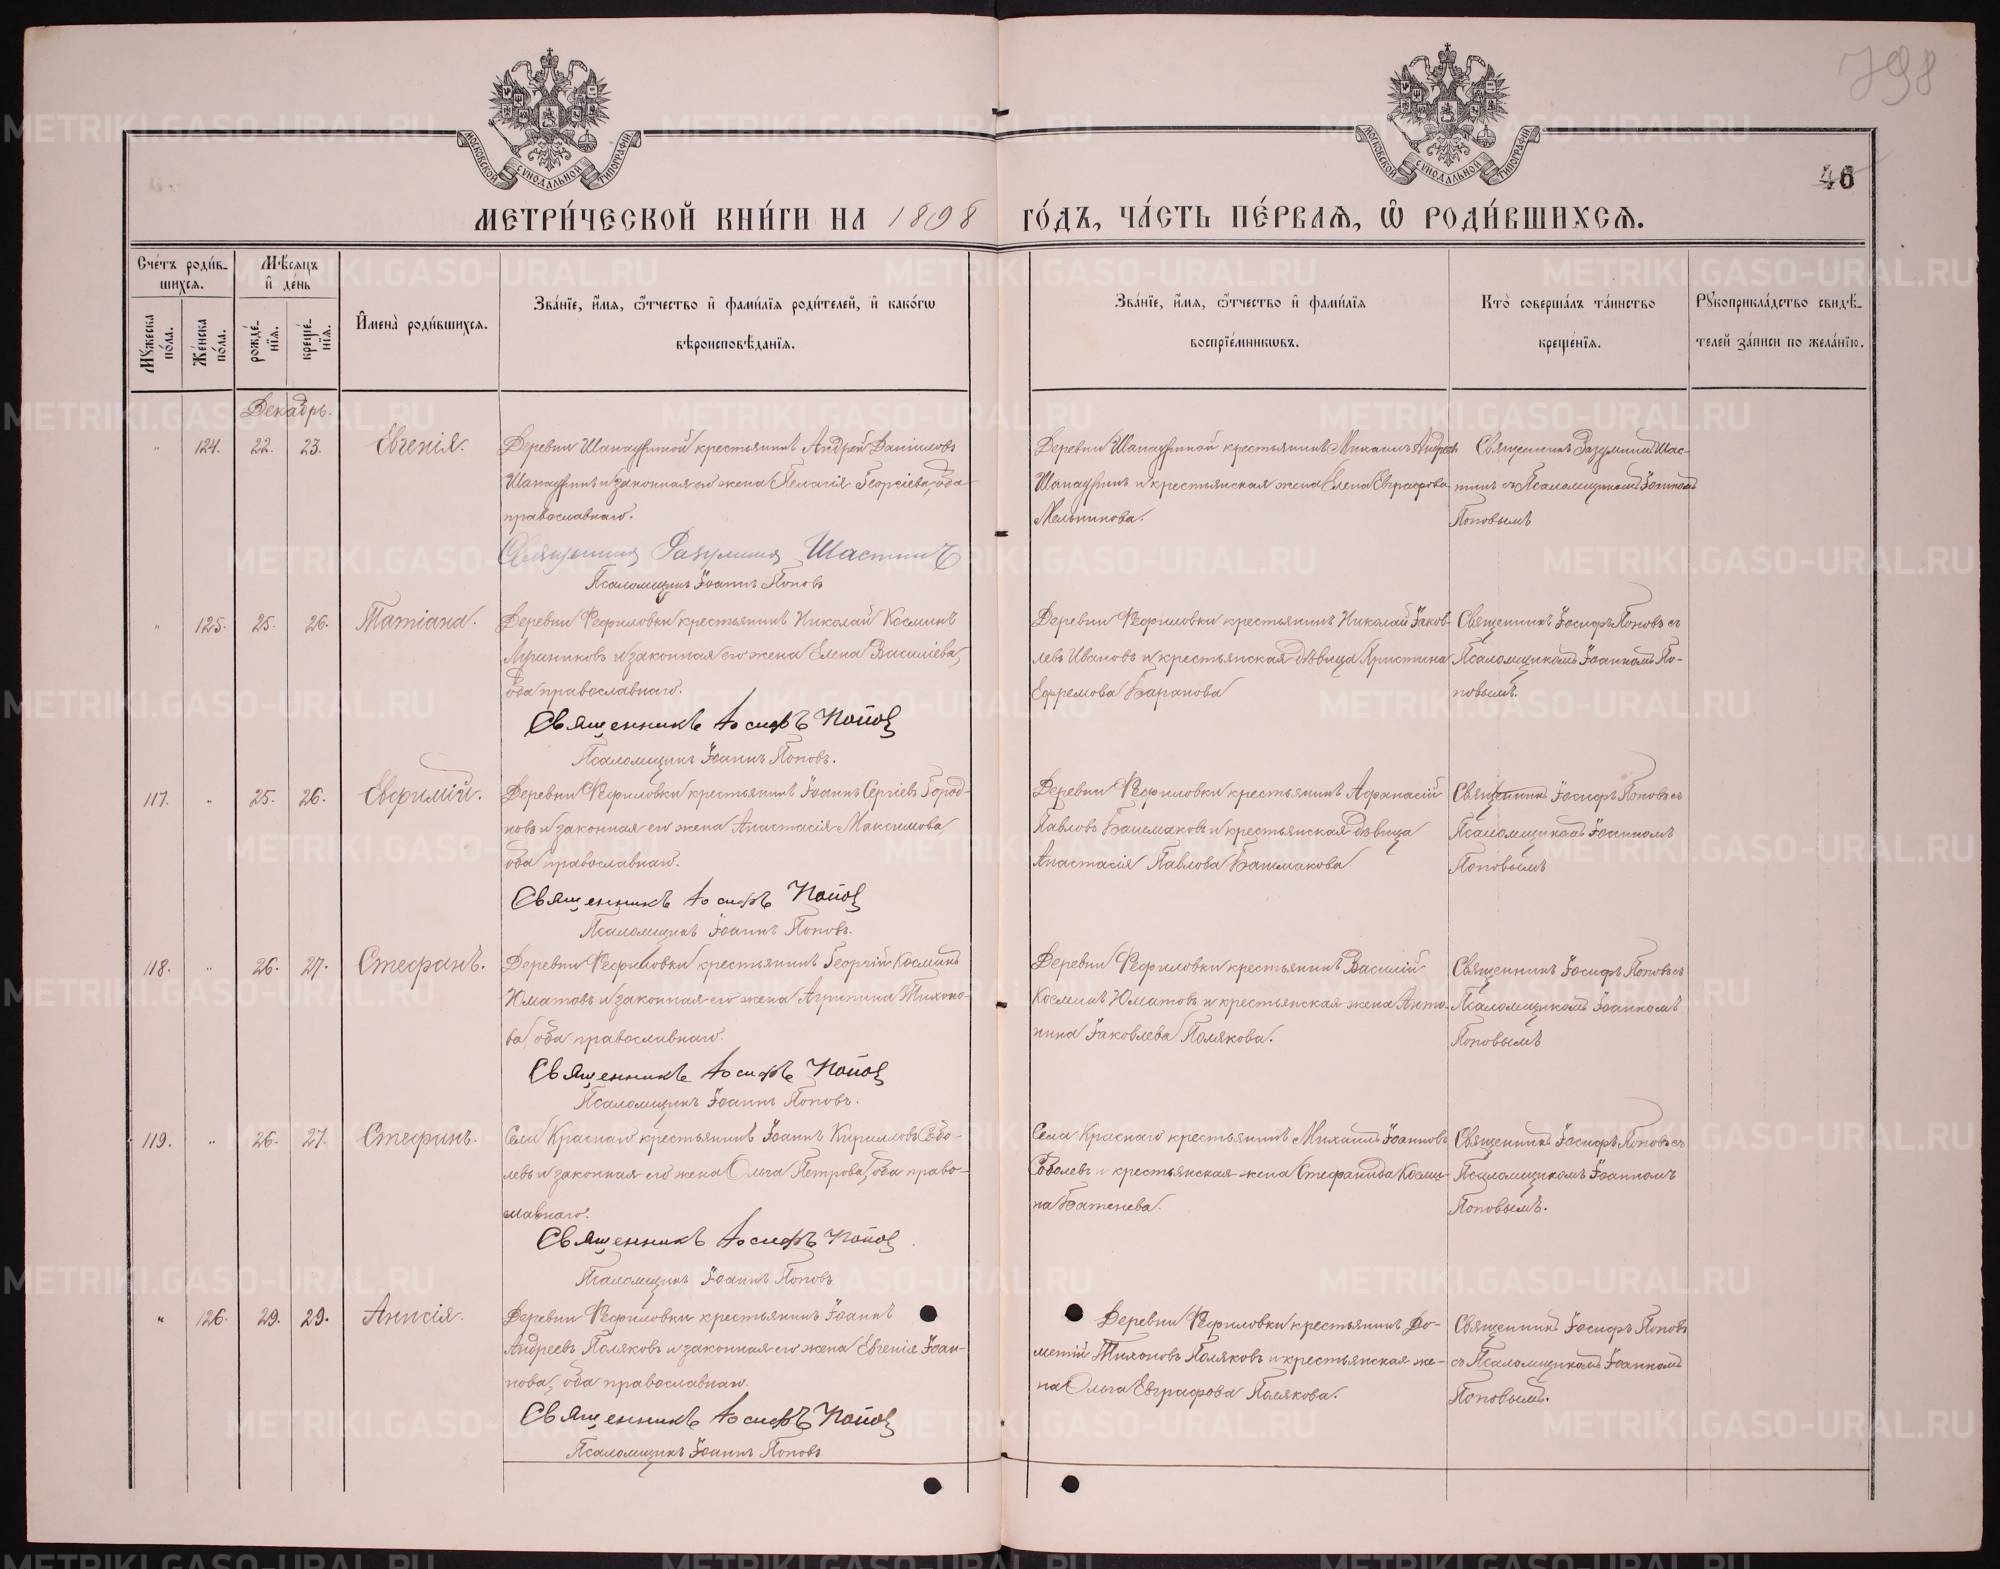 798
46
МОСКОВСКОЙ СѴНОДАЛЬНОЙ ТИПОГРАФІИ
МОСКОВСКОЙ СѴНОДАЛЬНОЙ ТИПОГРАФІИ
МЕТРИ́ЧЕСКОЙ КНИ́ГИ НА 1898 ГО́ДЪ, ЧА́СТЬ ПЕ́РВАѦ, Ѽ РОДИ́ВШИХСѦ.
Сче́тъ роди́в-
шихсѧ.
Мѣ́сѧцъ
и҆ де́нь
Мꙋ́жеска по́ла.
Же́нска по́ла.
рожде́-
нїѧ.
креще́-
нїѧ.
И҆мена̀ роди́вшихсѧ.
Зва́нїе, и҆́мѧ, ѻ҆́тчество и҆ фами́лїѧ роди́телей, и҆ како́гѡ
вѣроисповѣ́данїѧ.
Зва́нїе, и҆́мѧ, ѻ҆́тчество и҆ фами́лїѧ
воспрїе́мникѡвъ.
Кто̀ соверша́лъ та́инство
креще́нїѧ.
Рꙋкоприкла́дство свидѣ́-
телей за́писи по жела́нїю.
Декабрь.
" 124. 22. 23. Евгенія.
Деревни Шападриной крестьянинъ Андрей Даніиловъ
и законная его жена Пелагія Георгіева, оба
православнаго.
Священникъ Разумникъ Шастинъ
Псаломщикъ Іоаннъ Поповъ
крестьянинъ Михаилъ Андреевъ
и крестьянская жена Елена Евграфова
Мельникова.
Священникъ Разумникъ Шас-
тинъ съ Псаломщикомъ Іоанномъ
Поповымъ
" 125. 25. 26. Татіана.
Деревни крестьянинъ Николай Косминъ
и законная его жена Елена Василіева,
оба православнаго.
Священникъ Іосифъ Поповъ
Псаломщикъ Іоаннъ Поповъ.
Деревни крестьянинъ Николай Іаков-
левъ Ивановъ и крестьянская дѣвица Христина
Ефремова Баранова
Священникъ Іосифъ Поповъ съ
Псаломщикомъ Іоанномъ По-
повымъ.
117. " 25. 26. Евфимій.
Деревни крестьянинъ Іоаннъ Сергіевъ Город-
ковъ и законная его жена Анастасія Максимова
оба православнаго.
Священникъ Іосифъ Поповъ
Псаломщикъ Іоаннъ Поповъ.
Деревни крестьянинъ Афанасій
Павловъ Башмаковъ и крестьянская дѣвица
Анастасія Павлова Башмакова
Священникъ Іосифъ Поповъ съ
Псаломщикомъ Іоанномъ
Поповымъ
118. " 26. 27. Стефанъ.
Деревни крестьянинъ Георгій Косминъ
Юматовъ и законная его жена Агрипина Тихоно-
ва, оба православнаго.
Священникъ Іосифъ Поповъ
Псаломщикъ Іоаннъ Поповъ.
Деревни крестьянинъ Василій
Косминъ Юматовъ и крестьянская жена Анто-
нина Іаковлева Полякова.
Священникъ Іосифъ Поповъ съ
Псаломщикомъ Іоанномъ
Поповымъ
119. " 26. 27. Стефанъ.
Села Краснаго крестьянинъ Іоаннъ Кирилловъ Собо-
левъ и законная его жена Ольга Петрова, оба право-
славнаго.
Священникъ Іосифъ Поповъ
Псаломщикъ Іоаннъ Поповъ
Села Краснаго крестьянинъ Михаилъ Іоанновъ
Соболевъ и крестьянская жена Стефанида Косми-
на Батенева.
Священникъ Іосифъ Поповъ съ
Псаломщикомъ Іоанномъ
Поповымъ.
" 126. 29. 29. Анисія.
Деревни крестьянинъ Іоаннъ
Андреевъ Поляковъ и законная его жена Евгенія Іоан-
нова, оба православнаго.
Священникъ Іосифъ Поповъ
Псаломщикъ Іоаннъ Поповъ
Деревни крестьянинъ До-
метій Тихоновъ Поляковъ и крестьянская же-
на Ольга Евграфова Полякова.
Священникъ Іосифъ Поповъ
съ Псаломщикомъ Іоанномъ
Поповымъ.
METRIKI.GASO-URAL.RU